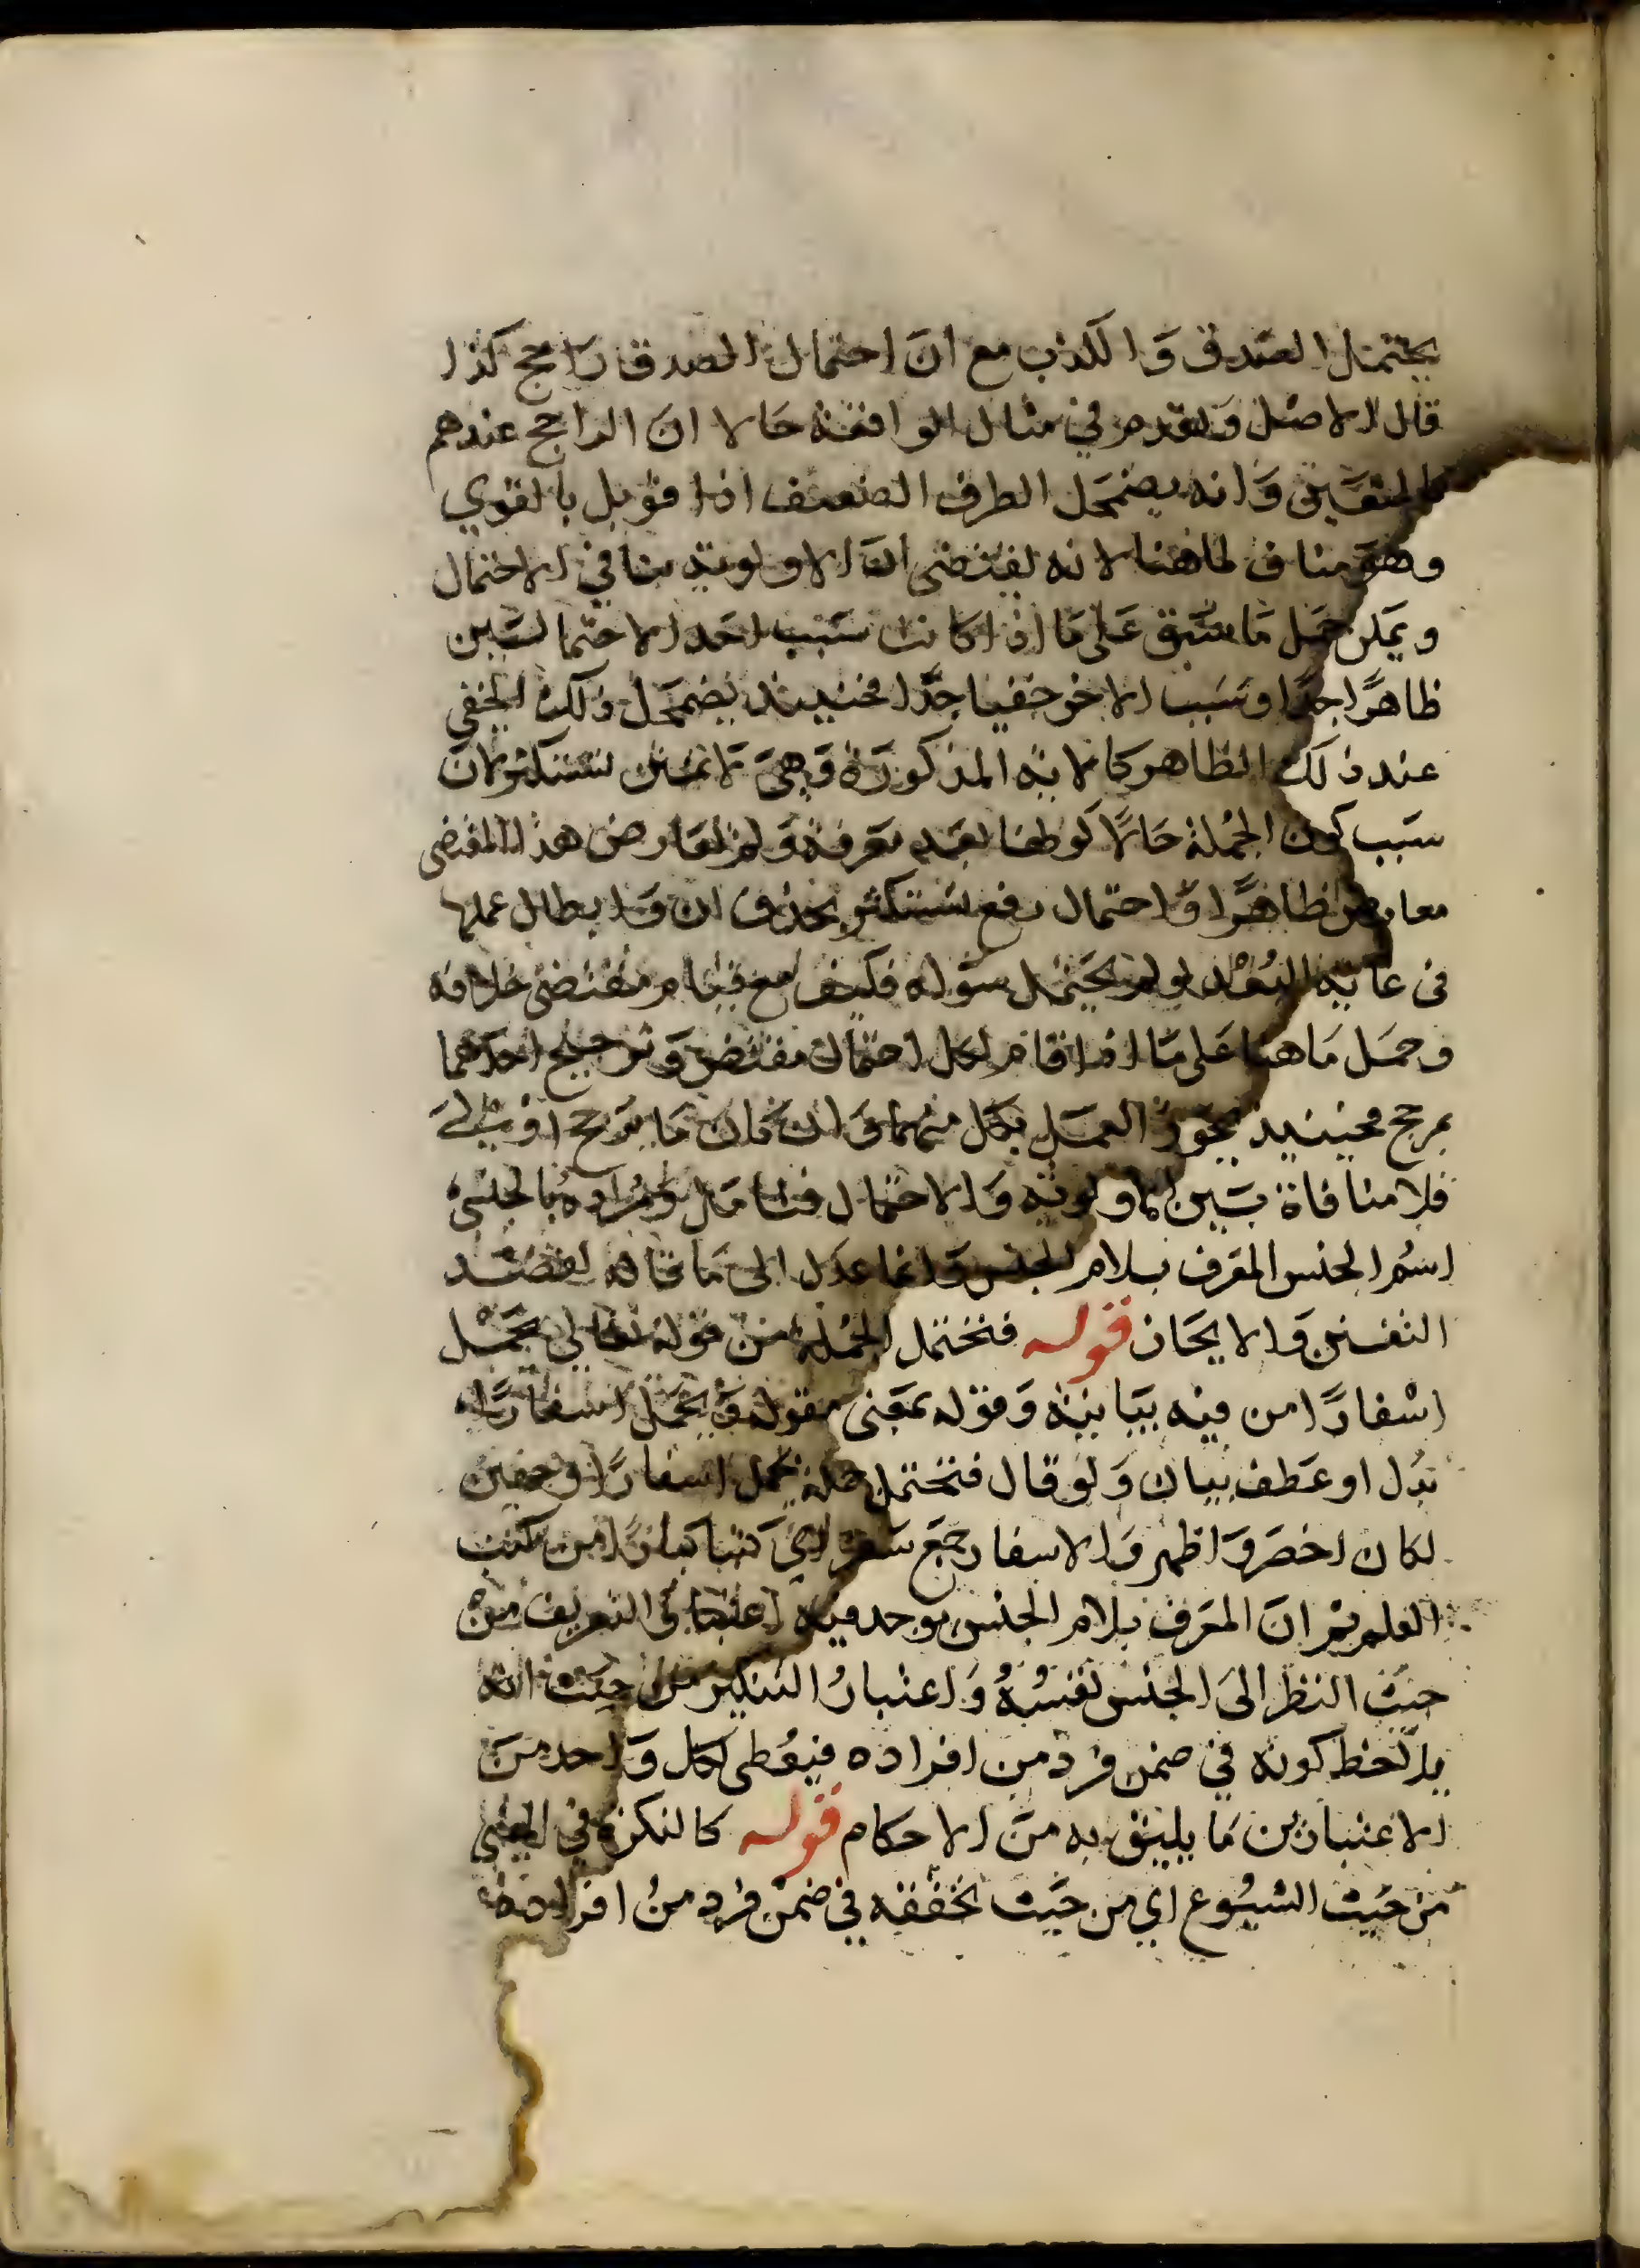 يحتمل الصدق والكذب مع ان احتمال الصدق راجح كذا
قال الاصل وتقدم في مثال الواقعة حالا ان الراجح عندهم
كالمتعين وانه يضمحل الطرف الضعيف اذا قوبل بالقوي
وهو مناف لما هنا لانه يقتضى ان الاولوية تنافي الاحتمال
ويمكن حمل ما سبق على ما اذا كانت سبب احد الاحتمالين
ظاهرًا جدًا وسبب الاخر خفيا جدًا فحينيذ يضمحل ذلك الخفي
عند ذلك الظاهر كالاية المذكورة وهي لا تمنن تستكثر لان
سبب كون الجملة حالًا كونها بعد معرفة ولم يعارض هذا المقتضى
معارض ظاهرًا واحتمال رفع تستكثر بحذف ان وابطال عملها
في غاية البعد لو لم يحتمل سواه فكيف مع قيام مقتضى خلافه
وحمل ما هنا على ما اذا قام لكل احتمال مقتض وترجيح احدهما
بمرجح فحينيذ يجوز العمل بكل منهما وان كان ما يرجح اولى
فلا منافاة بين الاولوية والاحتمال فتامل ومراده بالجنسي
اسم الجنس المعرف بلام الجنس وانما عدل الى ما قاله لقصد
التفنن والايجاز قوله فتحتمل الجملة من قوله تعالى يحمل
اسفارًا من فيه بيانية وقوله بمعنى مقوله ويحمل اسفارًا
بدل او عطف بيان ولو قال فتحتمل جملة يحمل اسفارًا وجهين
لكان اخصر واظهر والاسفار جمع سفر اي كتبا كبارًا من كتب
العلم ثم ان المعرف بلام الجنس يوجد فيه اعتبار التعريف من
حيث النظر الى الجنس نفسه واعتبار التنكير من حيث انه
يلاحظ كونه في ضمن فرد من افراده فيعطى لكل واحد من
الاعتبارين ما يليق به من الاحكام قوله كالنكرة في المعنى
من حيث الشيوع اي من حيث تحققه في ضمن فرد من افراده